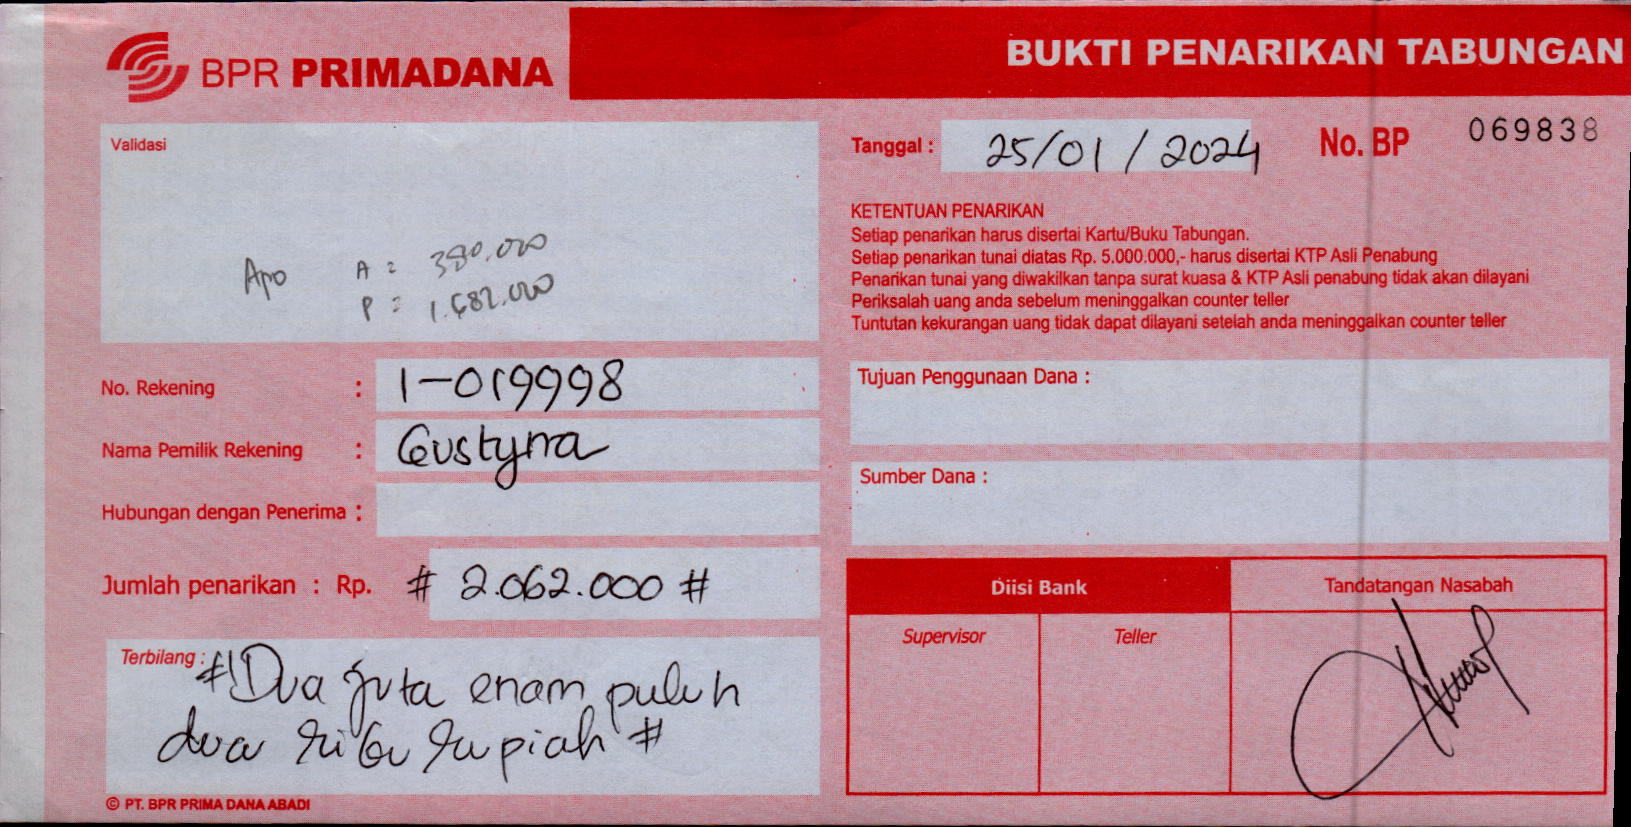 BPR PRIMADANA
BUKTI PENARIKAN TABUNGAN
Validasi
Apo A = 380.000
P = 1.682.000
Tanggal : 25/01/2024
No. BP 069838
KETENTUAN PENARIKAN
Setiap penarikan harus disertai Kartu/Buku Tabungan.
Setiap penarikan tunai diatas Rp. 5.000.000,- harus disertai KTP Asli Penabung
Penarikan tunai yang diwakilkan tanpa surat kuasa & KTP Asli penabung tidak akan dilayani
Periksalah uang anda sebelum meninggalkan counter teller
Tuntutan kekurangan uang tidak dapat dilayani setelah anda meninggalkan counter teller
No. Rekening : 1-019998
Nama Pemilik Rekening : Gustyna
Hubungan dengan Penerima :
Jumlah penarikan : Rp. # 2.062.000 #
Terbilang : # Dua juta enam puluh
dua ribu rupiah #
Tujuan Penggunaan Dana :
Sumber Dana :
Diisi Bank
Tandatangan Nasabah
Supervisor
Teller
© PT. BPR PRIMA DANA ABADI